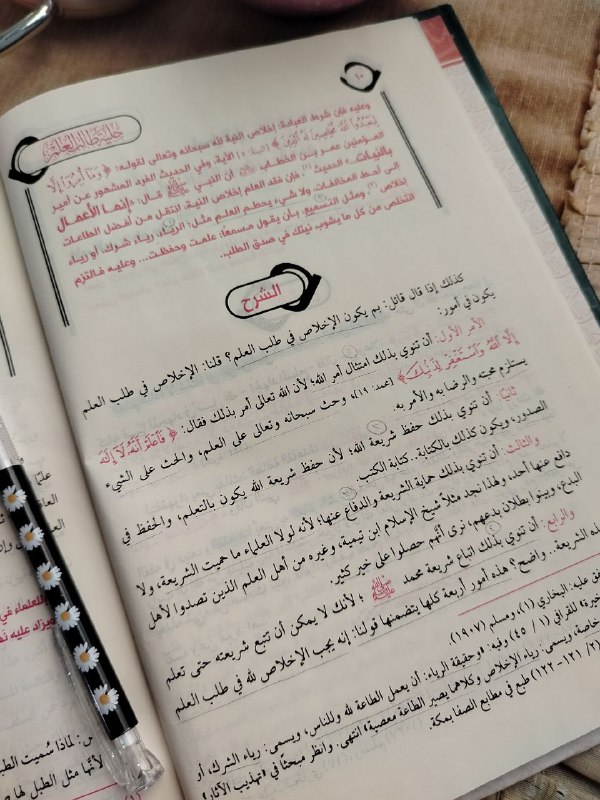 ١٠
حلية طالب العلم
وعليه فإن شرط العبادة: إخلاص النية لله سبحانه وتعالى لقوله: ﴿ وَمَآ أُمِرُوٓا۟ إِلَّا
لِيَعْبُدُوا۟ ٱللَّهَ مُخْلِصِينَ لَهُ ٱلدِّينَ ﴾ [البينة: ٥] الآية. وفي الحديث الفرد المشهور عن أمير
المؤمنين عمر بن الخطاب أن النبي ﷺ قال: «إنما الأعمال
بالنيات» الحديث (١). فإن فقد العلم إخلاص النية، انتقل من أفضل الطاعات
إلى أحط المخالفات، ولا شيء يحطم العلم مثل: الرياء؛ رياء شرك، أو رياء
إخلاص (٢)، ومثل التسميع؛ بأن يقول مسمعًا: علمت وحفظت... وعليه؛ فالتزم
التخلص من كل ما يشوب نيتك في صدق الطلب.
الشرح
كذلك إذا قال قائل: بم يكون الإخلاص في طلب العلم؟ قلنا: الإخلاص في طلب العلم
يكون في أمور:
الأمر الأول: أن تنوي بذلك امتثال أمر الله؛ لأن الله تعالى أمر بذلك فقال: ﴿ فَٱعْلَمْ أَنَّهُۥ لَآ إِلَٰهَ
إِلَّا ٱللَّهُ وَٱسْتَغْفِرْ لِذَنۢبِكَ ﴾ [محمد: ١٩]؛ وحث سبحانه وتعالى على العلم، والحث على الشيء
يستلزم محبته والرضا به والأمر به.
ثانيًا: أن تنوي بذلك حفظ شريعة الله؛ لأن حفظ شريعة الله يكون بالتعلم، والحفظ في
الصدور، ويكون كذلك بالكتابة.. كتابة الكتب.
والثالث: أن تنوي بذلك حماية الشريعة والدفاع عنها؛ لأنه لولا العلماء ما حميت الشريعة، ولا
دافع عنها أحد، ولهذا نجد مثلًا شيخ الإسلام ابن تيمية، وغيره من أهل العلم الذين تصدوا لأهل
البدع، وبينوا بطلان بدعهم، نرى أنهم حصلوا على خير كثير.
والرابع: أن تنوي بذلك اتباع شريعة محمد ﷺ؛ لأنك لا يمكن أن تتبع شريعته حتى تعلم
هذه الشريعة.. واضح؟ هذه أمور أربعة كلها يتضمنها قولنا: إنه يجب الإخلاص لله في طلب العلم
متفق عليه: البخاري (١)، ومسلم (١٩٠٧).
للقرافي (١ / ٤٥) وفيه: «وحقيقة الرياء: أن يعمل الطاعة لله وللناس، ويسمى: رياء الشرك، أو
خاصة، ويسمى: رياء الإخلاص وكلاهما يصير الطاعة معصية» انتهى. وانظر مبحثًا في «تهذيب الآثار»
١٢١- ١٢٢) طبع في مطابع الصفا بمكة.